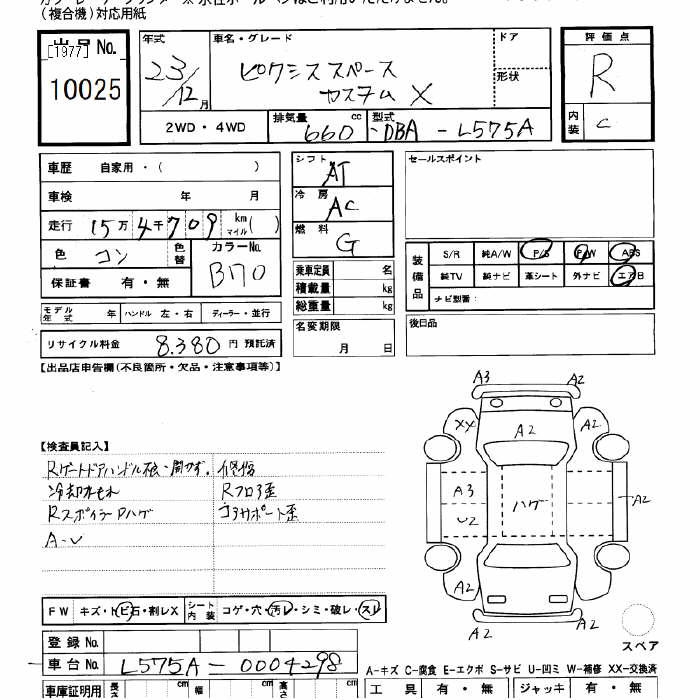 (複合機)対応用紙
出品No.
[1977]
10025
年式
23/12月
車名・グレード
ピクシススペース
カスタムX
ドア
形状
評価点
R
内装 C
2WD・4WD
排気量 660 cc
型式 DBA-L575A
車歴 自家用・( )
車検 年 月
走行 15万4千709 km マイル( )
色 コン 色替
カラーNo. B70
保証書 有・無
シフト AT
冷房 AC
燃料 G
乗車定員 名
積載量 kg
総重量 kg
名変期限
月 日
セールスポイント
装備品
S/R 純A/W P/S P/W ABS
純TV 純ナビ 革シート 外ナビ エアB
ナビ型番:
後日品
モデル年式 年 ハンドル 左・右 ディーラー・並行
リサイクル料金 8.380 円 預託済
【出品店申告欄(不良箇所・欠品・注意事項等)】
【検査員記入】
Rゲートドアハンドル 開カず. 修復
冷却水もれ Rフロア歪
RスポイラーPハゲ コアサポート歪
A-U
A3 A2
XX A2 A2
A3 U2 ハゲ A2
A2 A2
A2 A2
スペア
FW キズ・トビ石・割レX シート内装 コゲ・穴・汚レ・シミ・破レ・スレ
登録No.
車台No. L575A-0004298
A-キズ C-腐食 E-エクボ S-サビ U-凹ミ W-補修 XX-交換済
車庫証明用 長さ cm 幅 cm 高さ cm
工具 有・無 ジャッキ 有・無